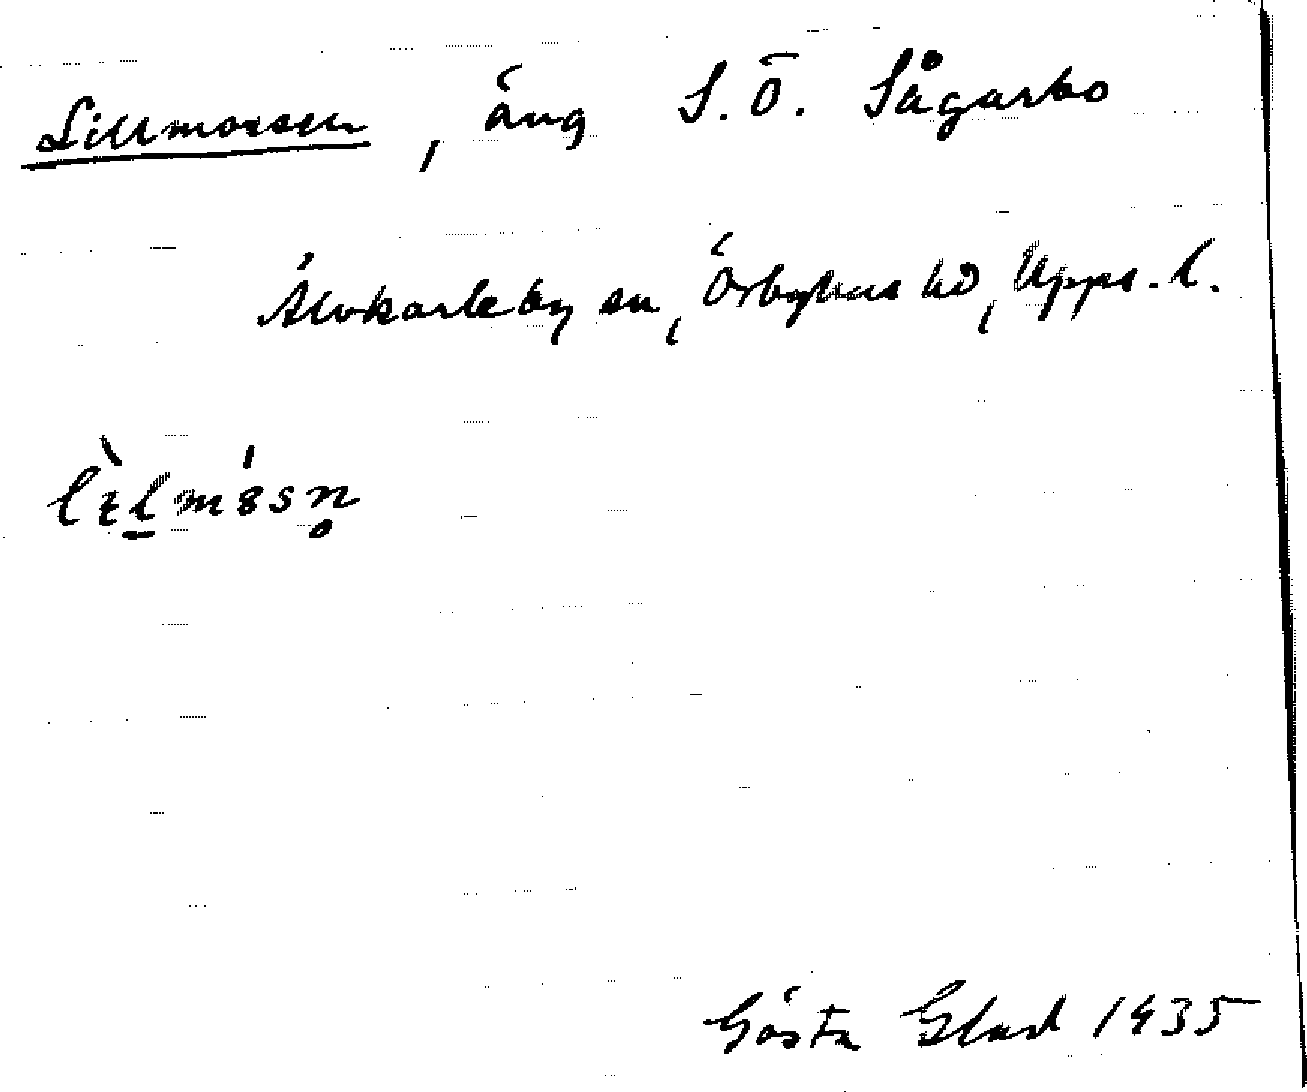 Lillmossen, äng S.Ö. Sågarbo
Älvkarleby sn, Örbyhus hd, Upps. l.
Gösta Glad 1935